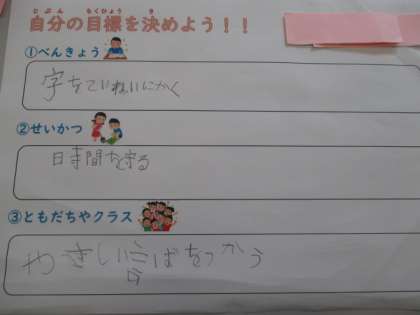 じぶん もくひょう き
自分の目標を決めよう！！
①べんきょう
字をていねいにかく
②せいかつ
時間を守る
③ともだちやクラス
やさしい言ばをつかう